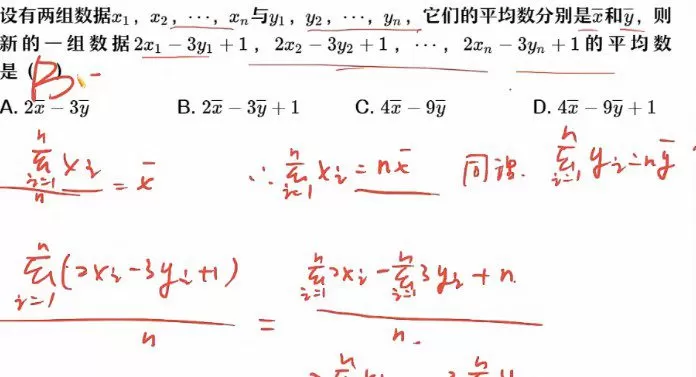 设有两组数据x₁，x₂，⋯，xₙ与y₁，y₂，⋯，yₙ，它们的平均数分别是x̄和ȳ，则
新的一组数据2x₁－3y₁+1，2x₂－3y₂+1，⋯，2xₙ－3yₙ+1的平均数
是（B）
A. 2x̄－3ȳ B. 2x̄－3ȳ+1 C. 4x̄－9ȳ D. 4x̄－9ȳ+1
∑ᵢ₌₁ⁿ xᵢ / n = x̄ ∴ ∑ᵢ₌₁ⁿ xᵢ = nx̄ 同理. ∑ᵢ₌₁ⁿ yᵢ = nȳ
∑ᵢ₌₁ⁿ (2xᵢ－3yᵢ+1) / n = (∑ᵢ₌₁ⁿ 2xᵢ － ∑ᵢ₌₁ⁿ 3yᵢ + n) / n.